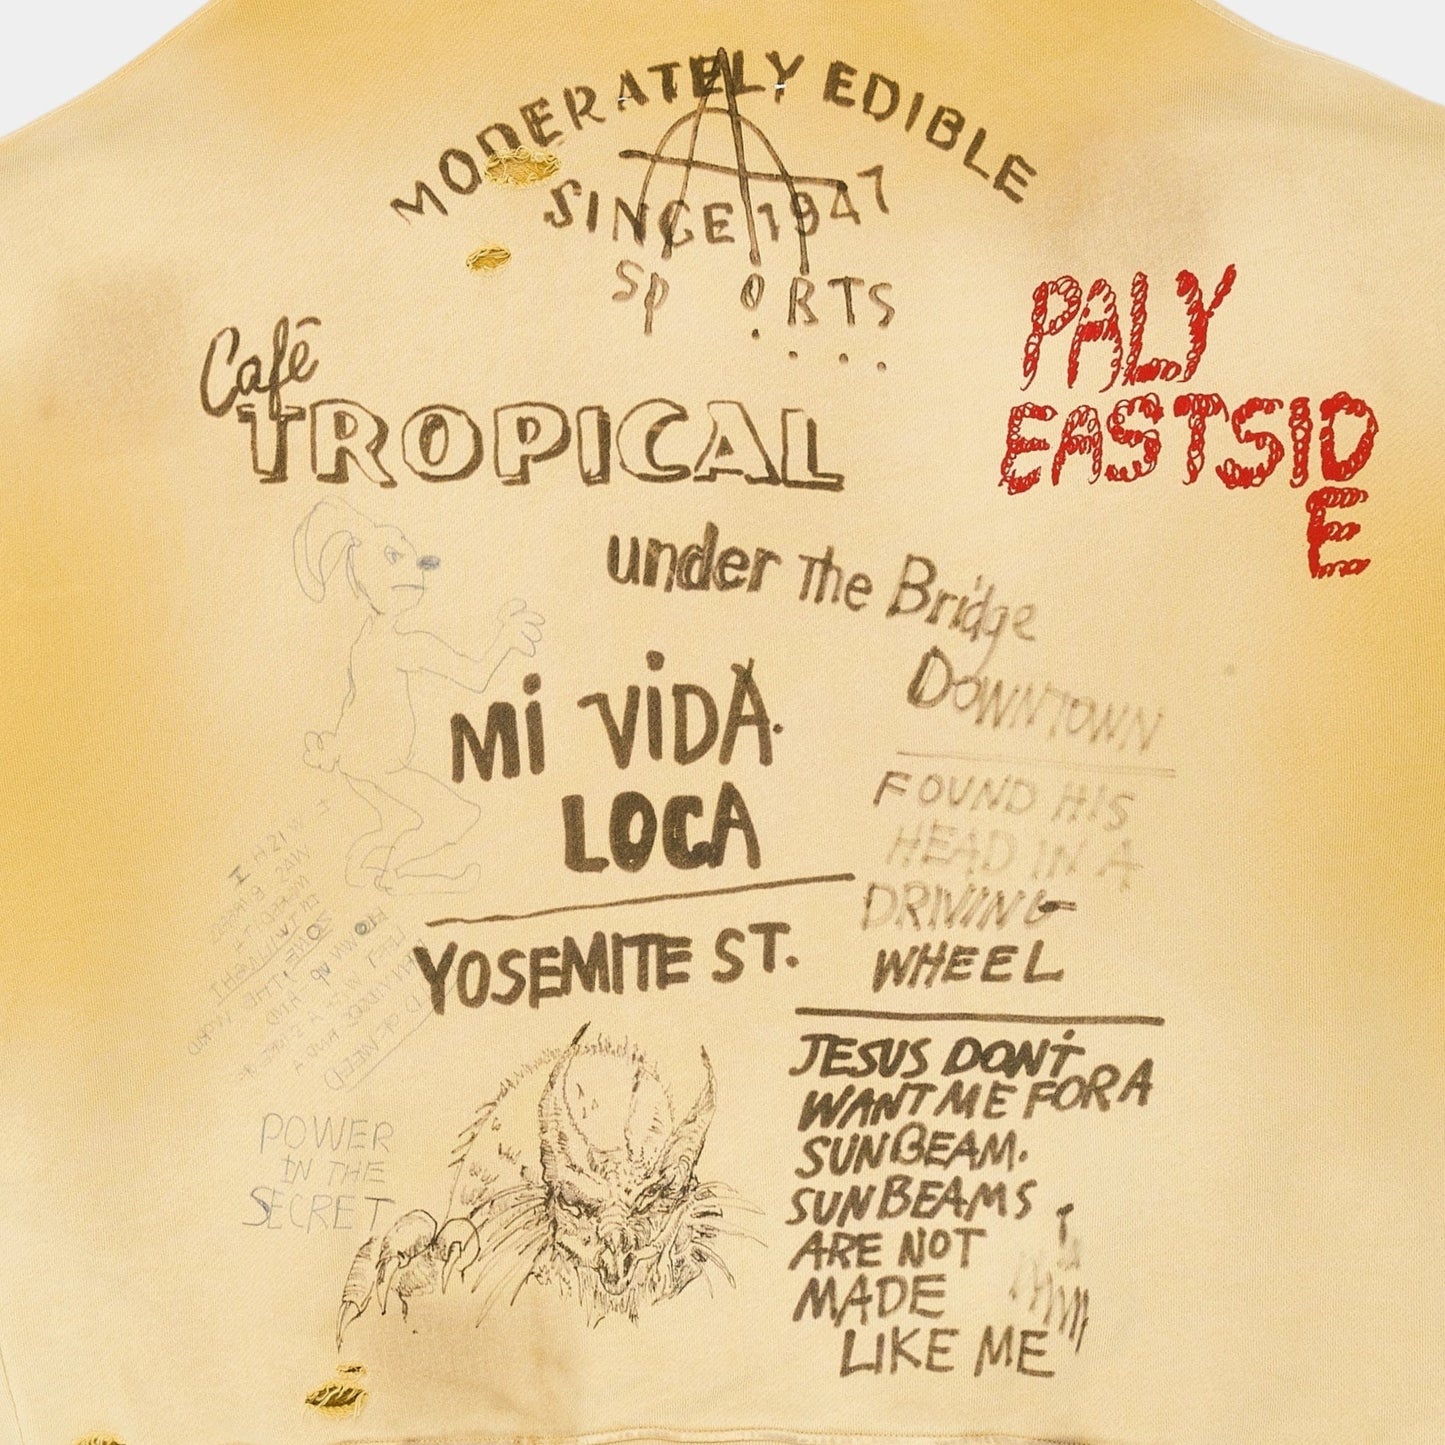 MODERATELY EDIBLE
SINCE 1947
SpORTS
Café
TROPICAL
PALY
EASTSID
E
under The Bridge
DOWNTOWN
Mi ViDA.
LOCA
FOUND HIS
HEAD IN A
DRIVING
WHEEL
YOSEMITE ST.
JESUS DON'T
WANT ME FOR A
SUNBEAM.
SUNBEAMS
ARE NOT
MADE
LIKE ME
POWER
IN THE
SECRET